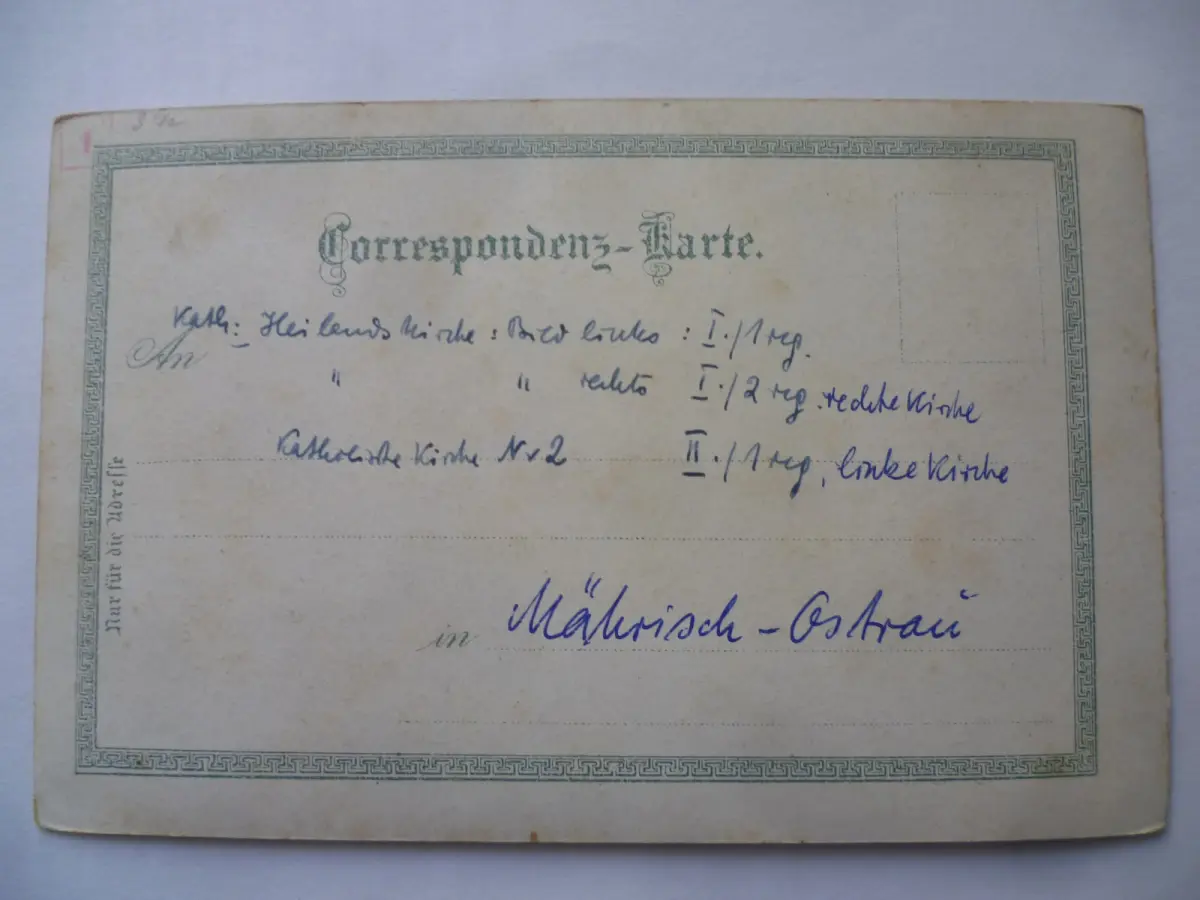 Correspondenz-Karte.
Kath: Heilandskirche : Bild links : I./1 reg.
An
" " rechts I./2 reg. rechte Kirche
Katholische Kirche Nr 2 II./1 reg, linke Kirche
Nur für die Adresse
in Mährisch-Ostrau